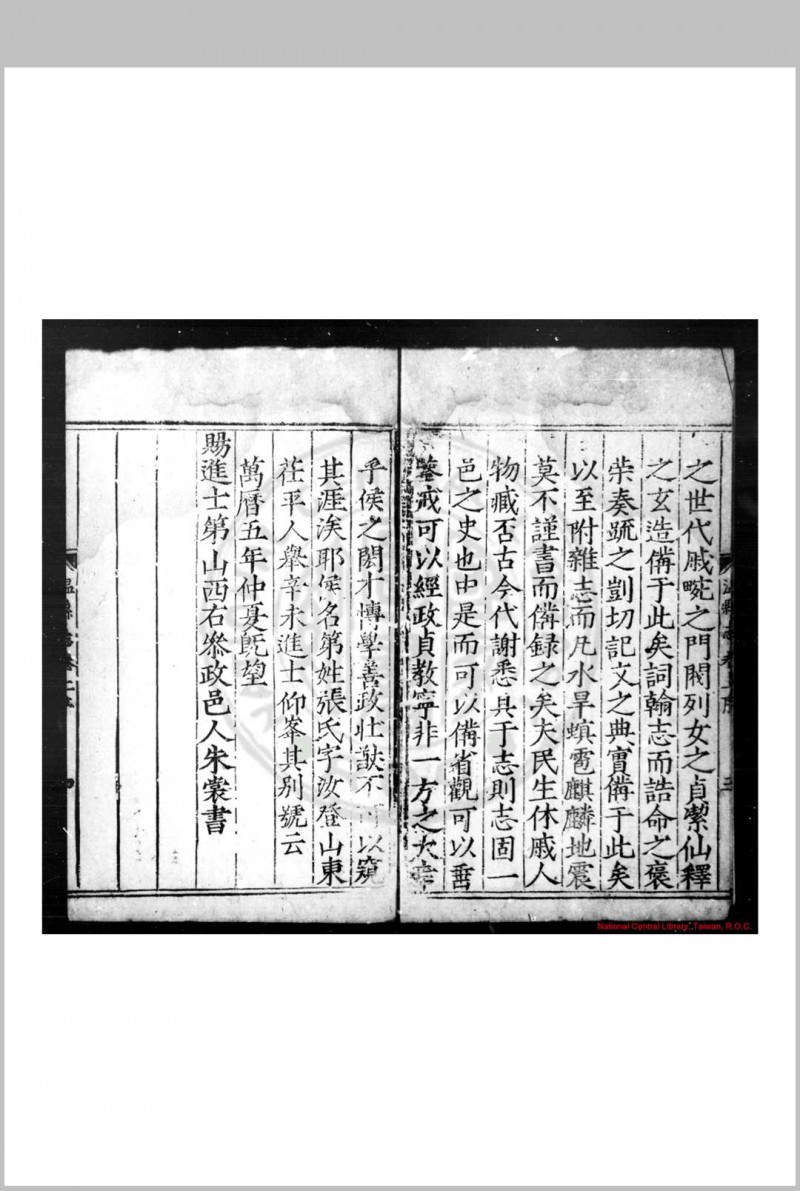 之世代戚畹之門閥列女之貞潔仙釋
之玄造備于此矣詞翰志而誥命之褒
崇奏疏之剴切記文之典實備于此矣
以至附雜志而凡水旱蝗雹麒麟地震
莫不謹書而備録之矣夫民生休戚人
物臧否古今代謝悉具于志則志固一
邑之史也由是而可以備省觀可以垂
鑒戒可以經政貞教寧非一方之大幸
乎侯之閎才博學善政壯猷不可以窺
其涯涘耶侯名第姓張氏字汝登山東
茌平人舉辛未進士仰峯其別號云
萬曆五年仲夏既望
賜進士第山西右叅政邑人朱裳書
溫縣
National Central Library, Taiwan, R.O.C.